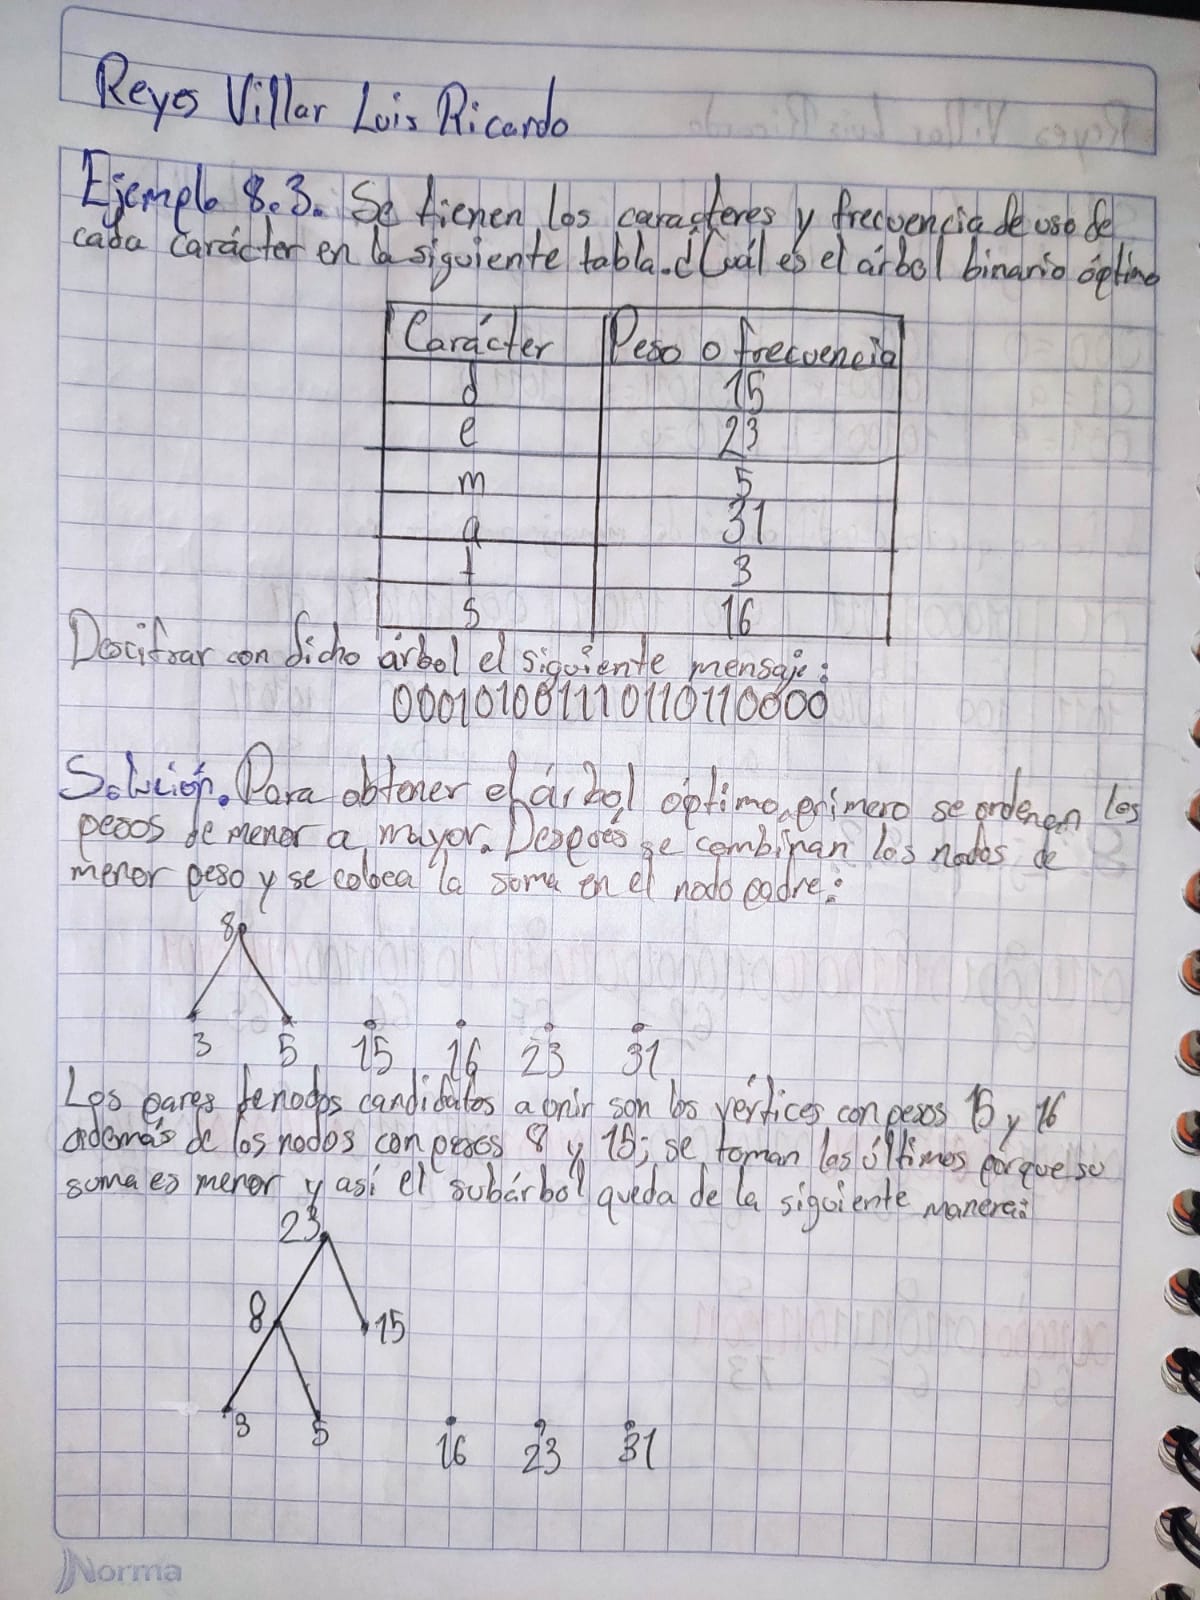 Reyes Villar Luis Ricardo
Ejemplo 8.3. Se tienen los caracteres y frecuencia de uso de
cada carácter en la siguiente tabla. ¿Cuál es el árbol binario óptimo
Carácter Peso o frecuencia
d 15
e 23
m 5
a 31
l 3
s 16
Descifrar con dicho árbol el siguiente mensaje:
0001010011110110110000
Solución. Para obtener el árbol óptimo, primero se ordenan los
pesos de menor a mayor. Después se combinan los nodos de
menor peso y se coloca la suma en el nodo padre:
8
3 5 15 16 23 31
Los pares de nodos candidatos a unir son los vértices con pesos 15 y 16
además de los nodos con pesos 8 y 15; se toman los últimos porque su
suma es menor y así el subárbol queda de la siguiente manera:
23
8 15
3 5 16 23 31
Norma